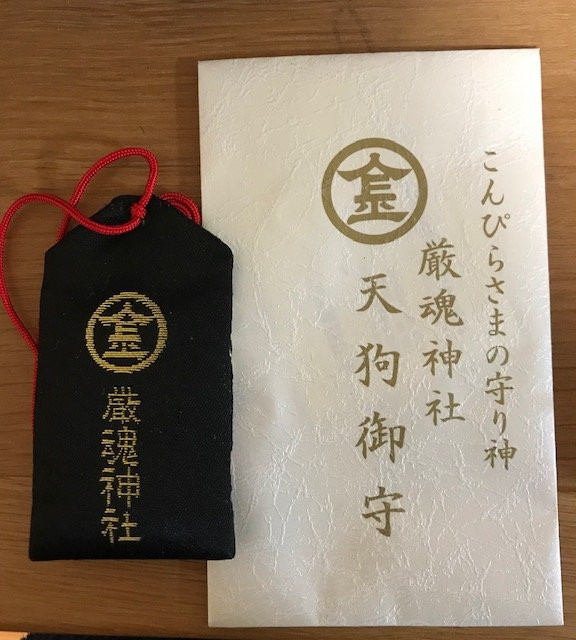 こんぴらさまの守り神
厳魂神社
天狗御守
金
金
厳魂神社